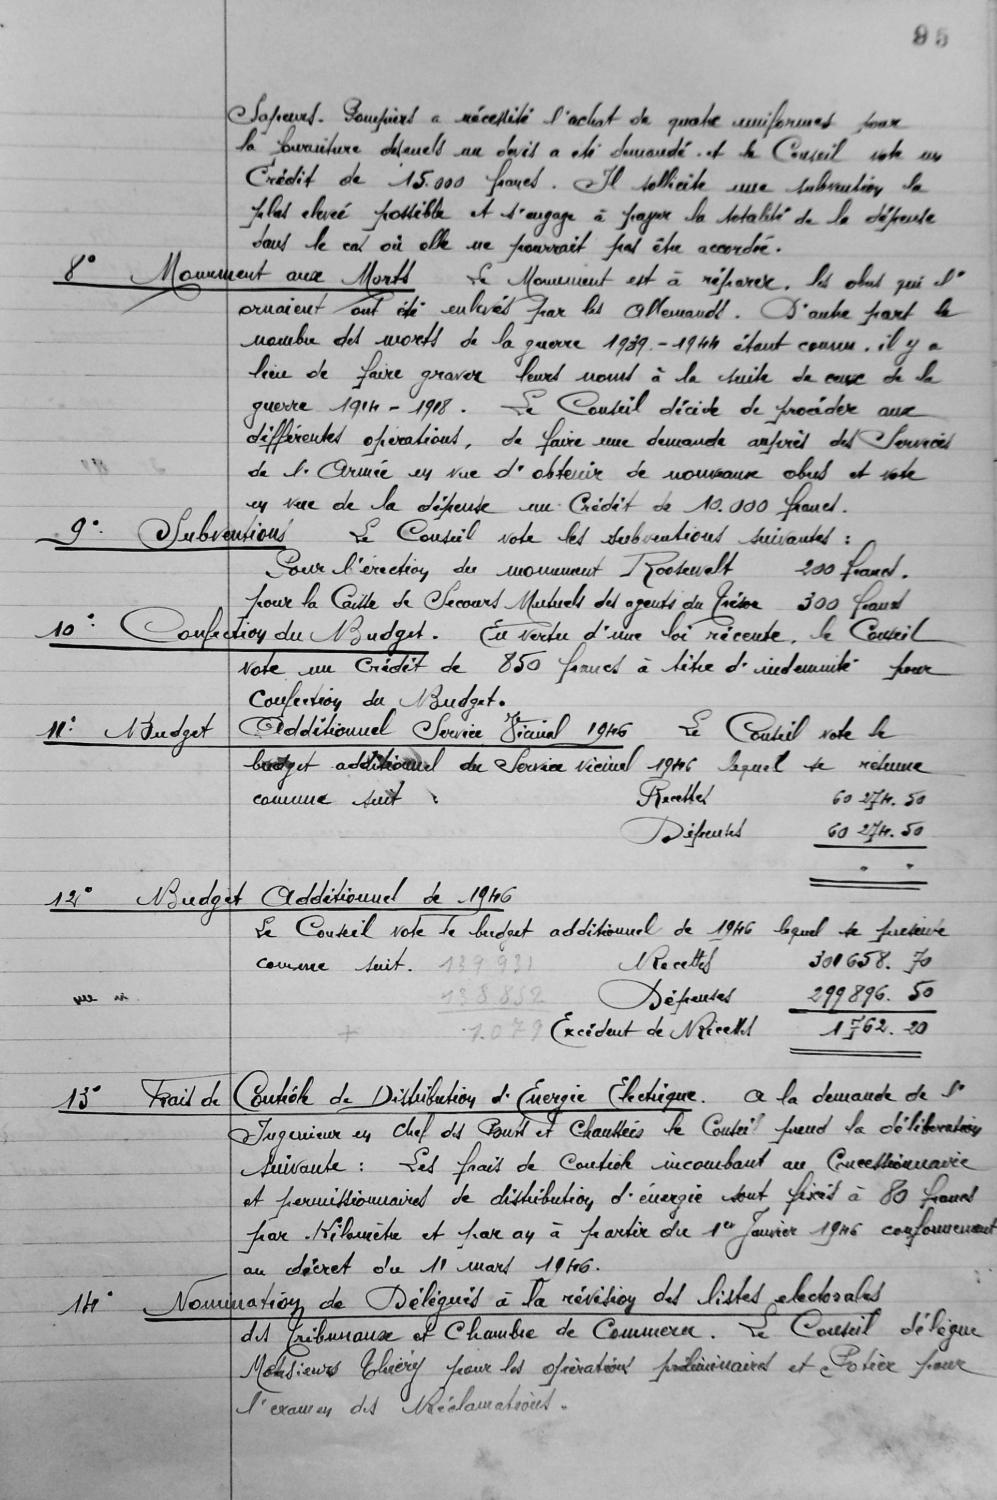 95
Sapeurs-Pompiers a nécessité l'achat de quatre uniformes pour
la fourniture desquels un devis a été demandé et le Conseil vote un
Crédit de 15.000 francs. Il sollicite une subvention la
plus elevée possible et s'engage à payer la totalité de la dépense
dans le cas où elle ne pourrait pas être accordée.
8° Monument aux Morts Le Monument est à réparer, les obus qui l'
ornaient ont été enlevés par les Allemands. D'autre part le
nombre des morts de la guerre 1939-1944 étant connu, il y a
lieu de faire graver leurs noms à la suite de ceux de la
guerre 1914-1918. Le Conseil décide de procéder aux
différentes opérations, de faire une demande auprès des Services
de l'Armée en vue d'obtenir de nouveaux obus et vote
en vue de la dépense un Crédit de 10.000 francs.
9° Subventions Le Conseil vote les subventions suivantes :
Pour l'érection du monument Roosewelt 200 francs.
pour la Caisse de Secours Mutuels des agents du Trésor 300 francs
10° Confection du Budget. En vertu d'une loi récente, le Conseil
vote un Crédit de 850 francs à titre d'indemnité pour
Confection du Budget.
11° Budget Additionnel Service Vicinal 1946 Le Conseil vote le
budget additionnel du Service vicinal 1946 lequel se résume
comme suit : Recettes 60 274.50
Dépenses 60 274.50
" "
12° Budget Additionnel de 1946
Le Conseil vote le budget additionnel de 1946 lequel se présente
comme suit. 139 931 Recettes 301658.70
138 852 Dépenses 299896.50
+ 1.079 Excédent de Recettes 1762.20
13° Frais de Contrôle de Distribution d'Énergie Électrique. A la demande de l'
Ingenieur en Chef des Ponts et Chaussées le Conseil prend la délibération
suivante : Les frais de contrôle incombant au Concessionnaire
et permissionnaires de distribution d'énergie sont fixés à 80 francs
par Kilomètre et par an à partir du 1er Janvier 1946 conformément
au décret du 11 mars 1946.
14° Nomination de Délégués à la révision des listes electorales
des Tribunaux et Chambre de Commerce. Le Conseil délègue
Messieurs Thiéry pour les opérations préliminaires et Potier pour
l'examen des Réclamations.